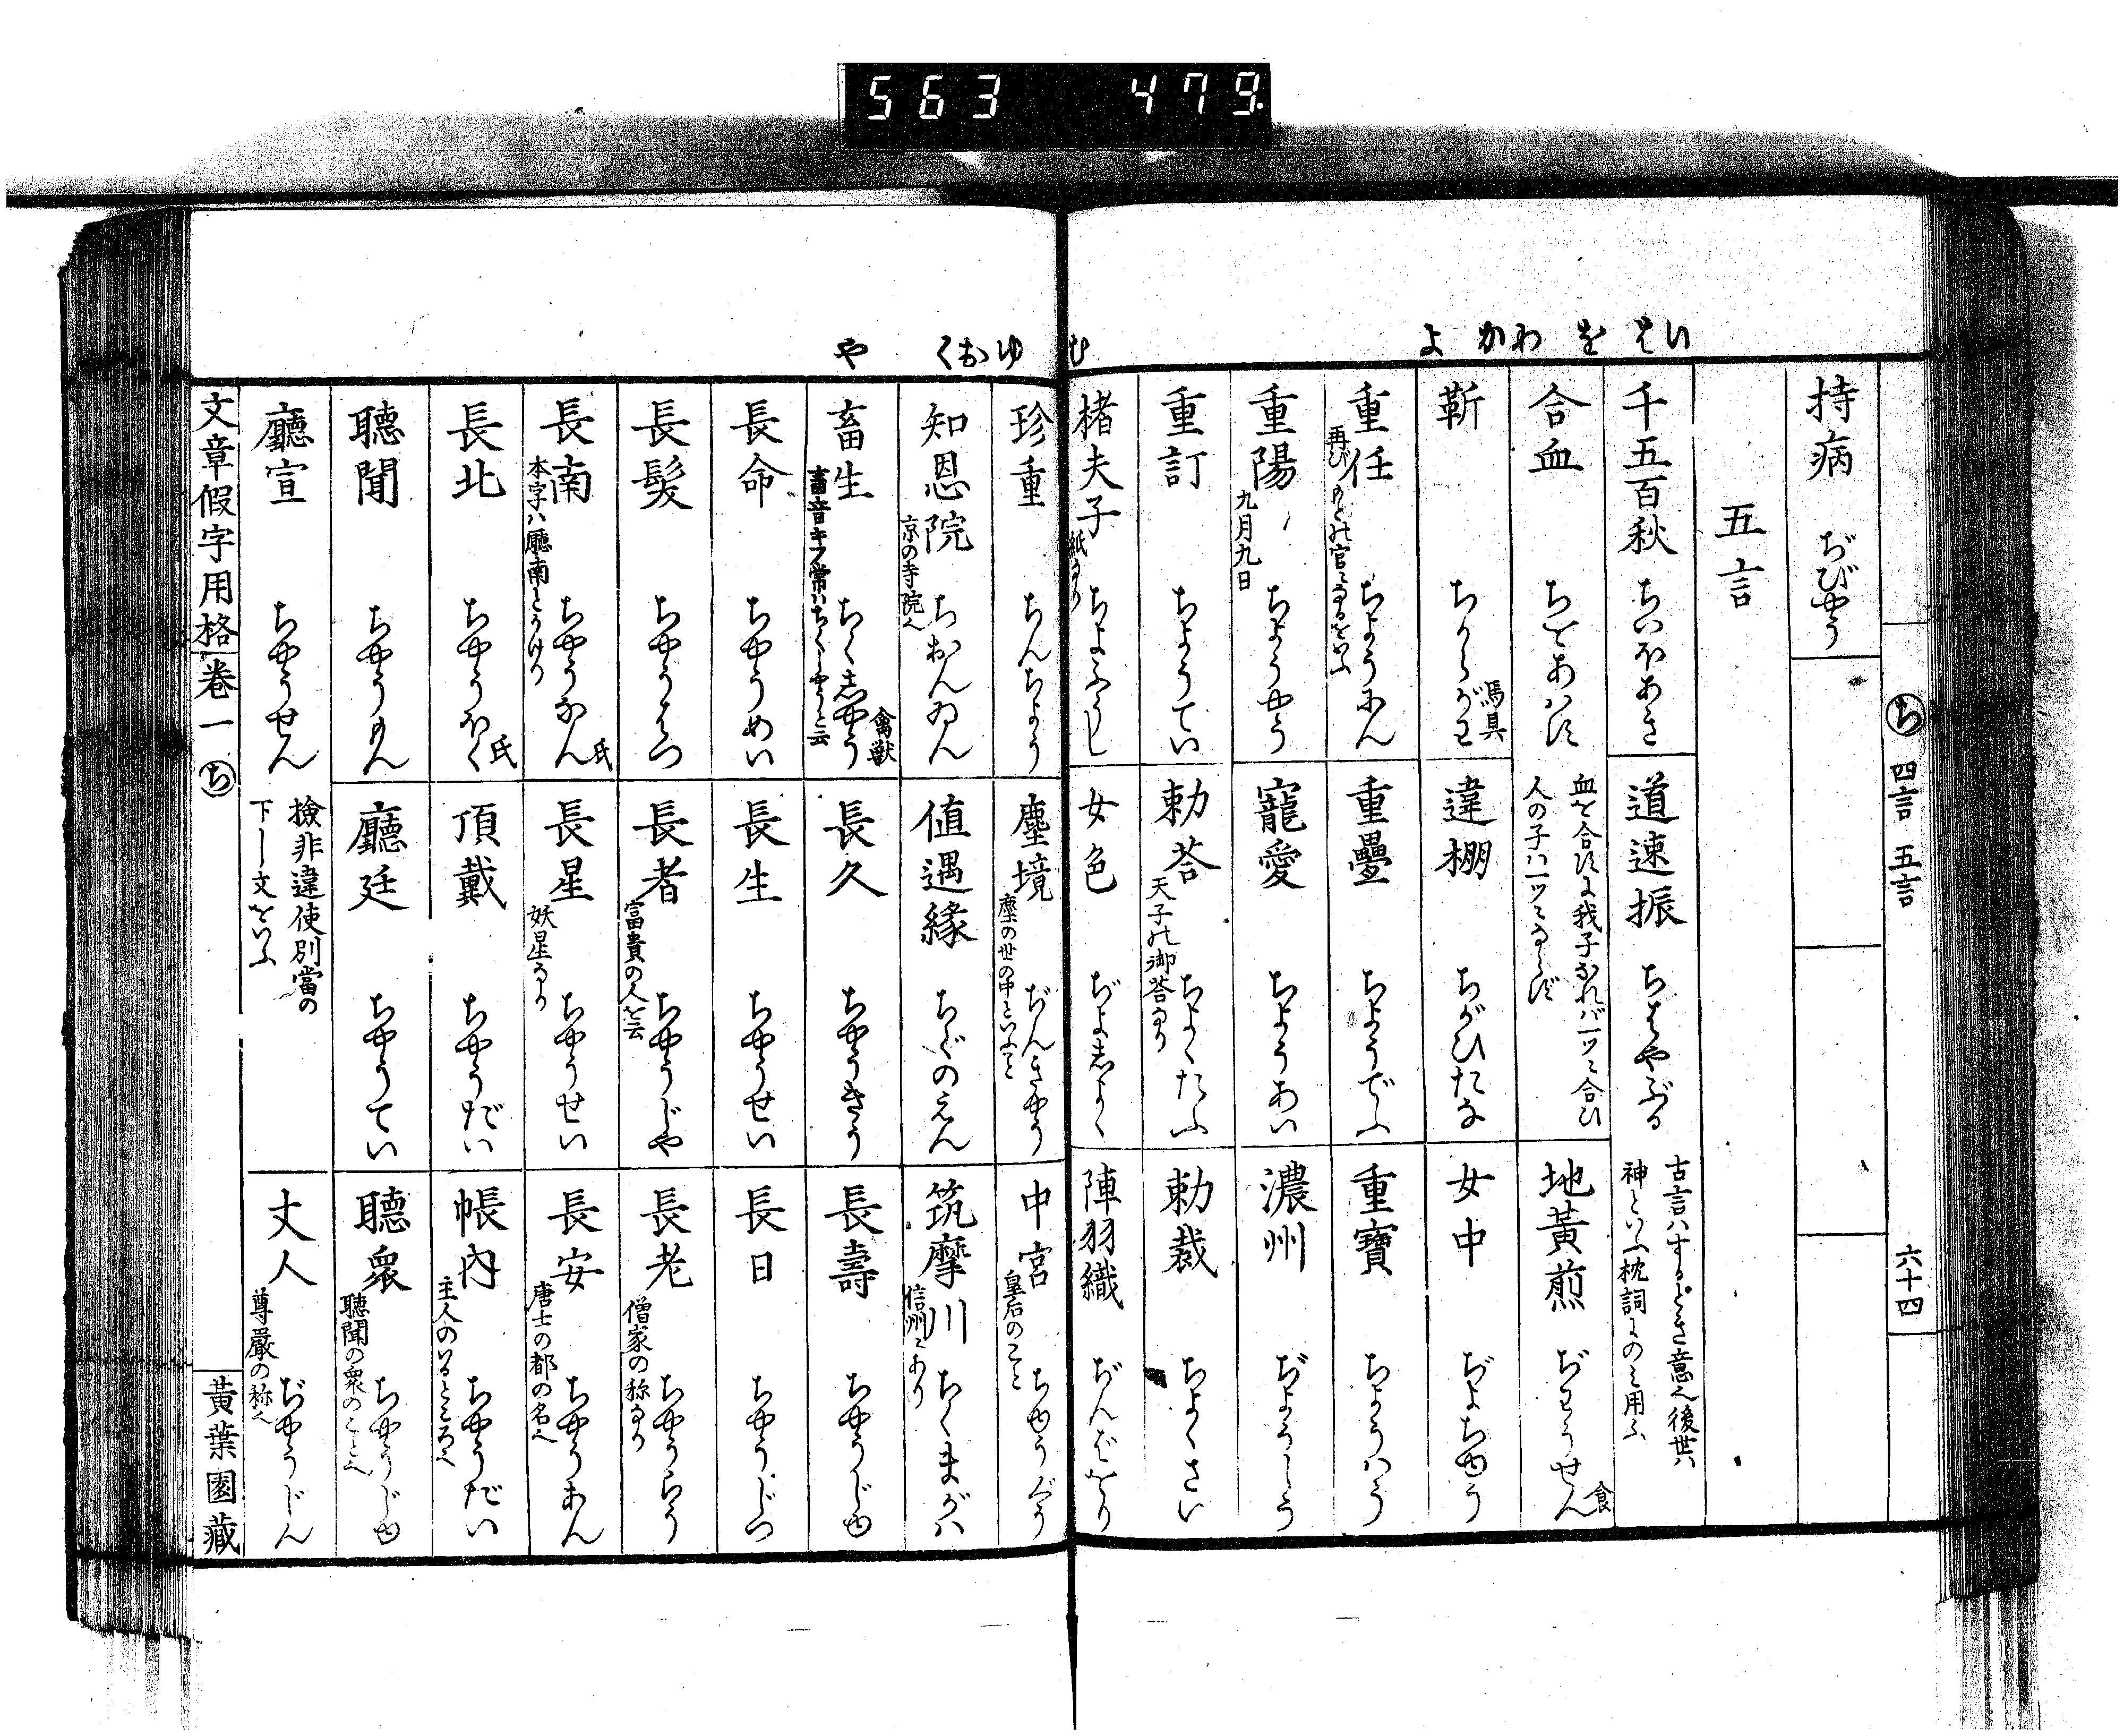 563 479
いはをわかよ
四言 五言
六十四
持病 ぢびやう
五言
千五百秋 ちいほあき
道速振 ちはやぶる
古言ハするどき意也後世ハ
神といへ枕詞にのミ用ふ
合血 ちをあハす
血を合すに我子なれバ一ツに合ひ
人の子ハ一ツにならず
地黄煎 ぢわうせん 食
靳 ちからがわ 馬具
違棚 ちがひだな
女中 ぢよちゆう
重任 ちようにん
再びもとの官になるをいふ
重疊 ちようでふ
重寶 ちようハう
重陽 ちようやう
九月九日
寵愛 ちようあい
濃州 ぢようしう
重訂 ちようてい
勅荅 ちよくたふ
天子の御荅なり
勅裁 ちよくさい
楮夫子 ちよふうし
紙なり
女色 ぢよしよく
陣羽織 ぢんばをり
むゆおくや
珍重 ちんちよう
塵境 ぢんきやう
塵の世の中といふこと
中宮 ちゆうぐう
皇后のこと
知恩院 ちおんゐん
京の寺院也
値遇緣 ちぐのえん
筑摩川 ちくまがハ
信州にあり
畜生 ちくしやう 禽獣
畜音キフ常ハちくしやうと云
長久 ちやうきう
長壽 ちやうじゆ
長命 ちやうめい
長生 ちやうせい
長日 ちやうじつ
長髮 ちやうはつ
長者 ちやうじや
富貴の人を云
長老 ちやうらう
僧家の称なり
長南 ちやうなん 氏
本字ハ廳南とうけり
長星 ちやうせい
妖星なり
長安 ちやうあん
唐土の都の名也
長北 ちやうほく 氏
頂戴 ちやうだい
帳内 ちやうだい
主人のいるところ也
聽聞 ちやうもん
廳廷 ちやうてい
聽衆 ちやうじゆ
聽聞の衆のこと也
廳宣 ちやうせん
撿非違使別當の
下し文をいふ
丈人 ぢやうじん
尊嚴の称也
文章假字用格 卷一 ち
黃葉園藏